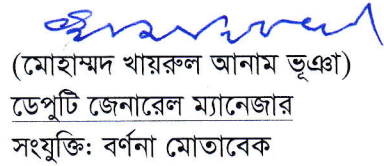 (মোহাম্মদ খায়রুল আনাম ভূঞা)
ডেপুটি জেনারেল ম্যানেজার
সংযুক্তি: বর্ণনা মোতাবেক